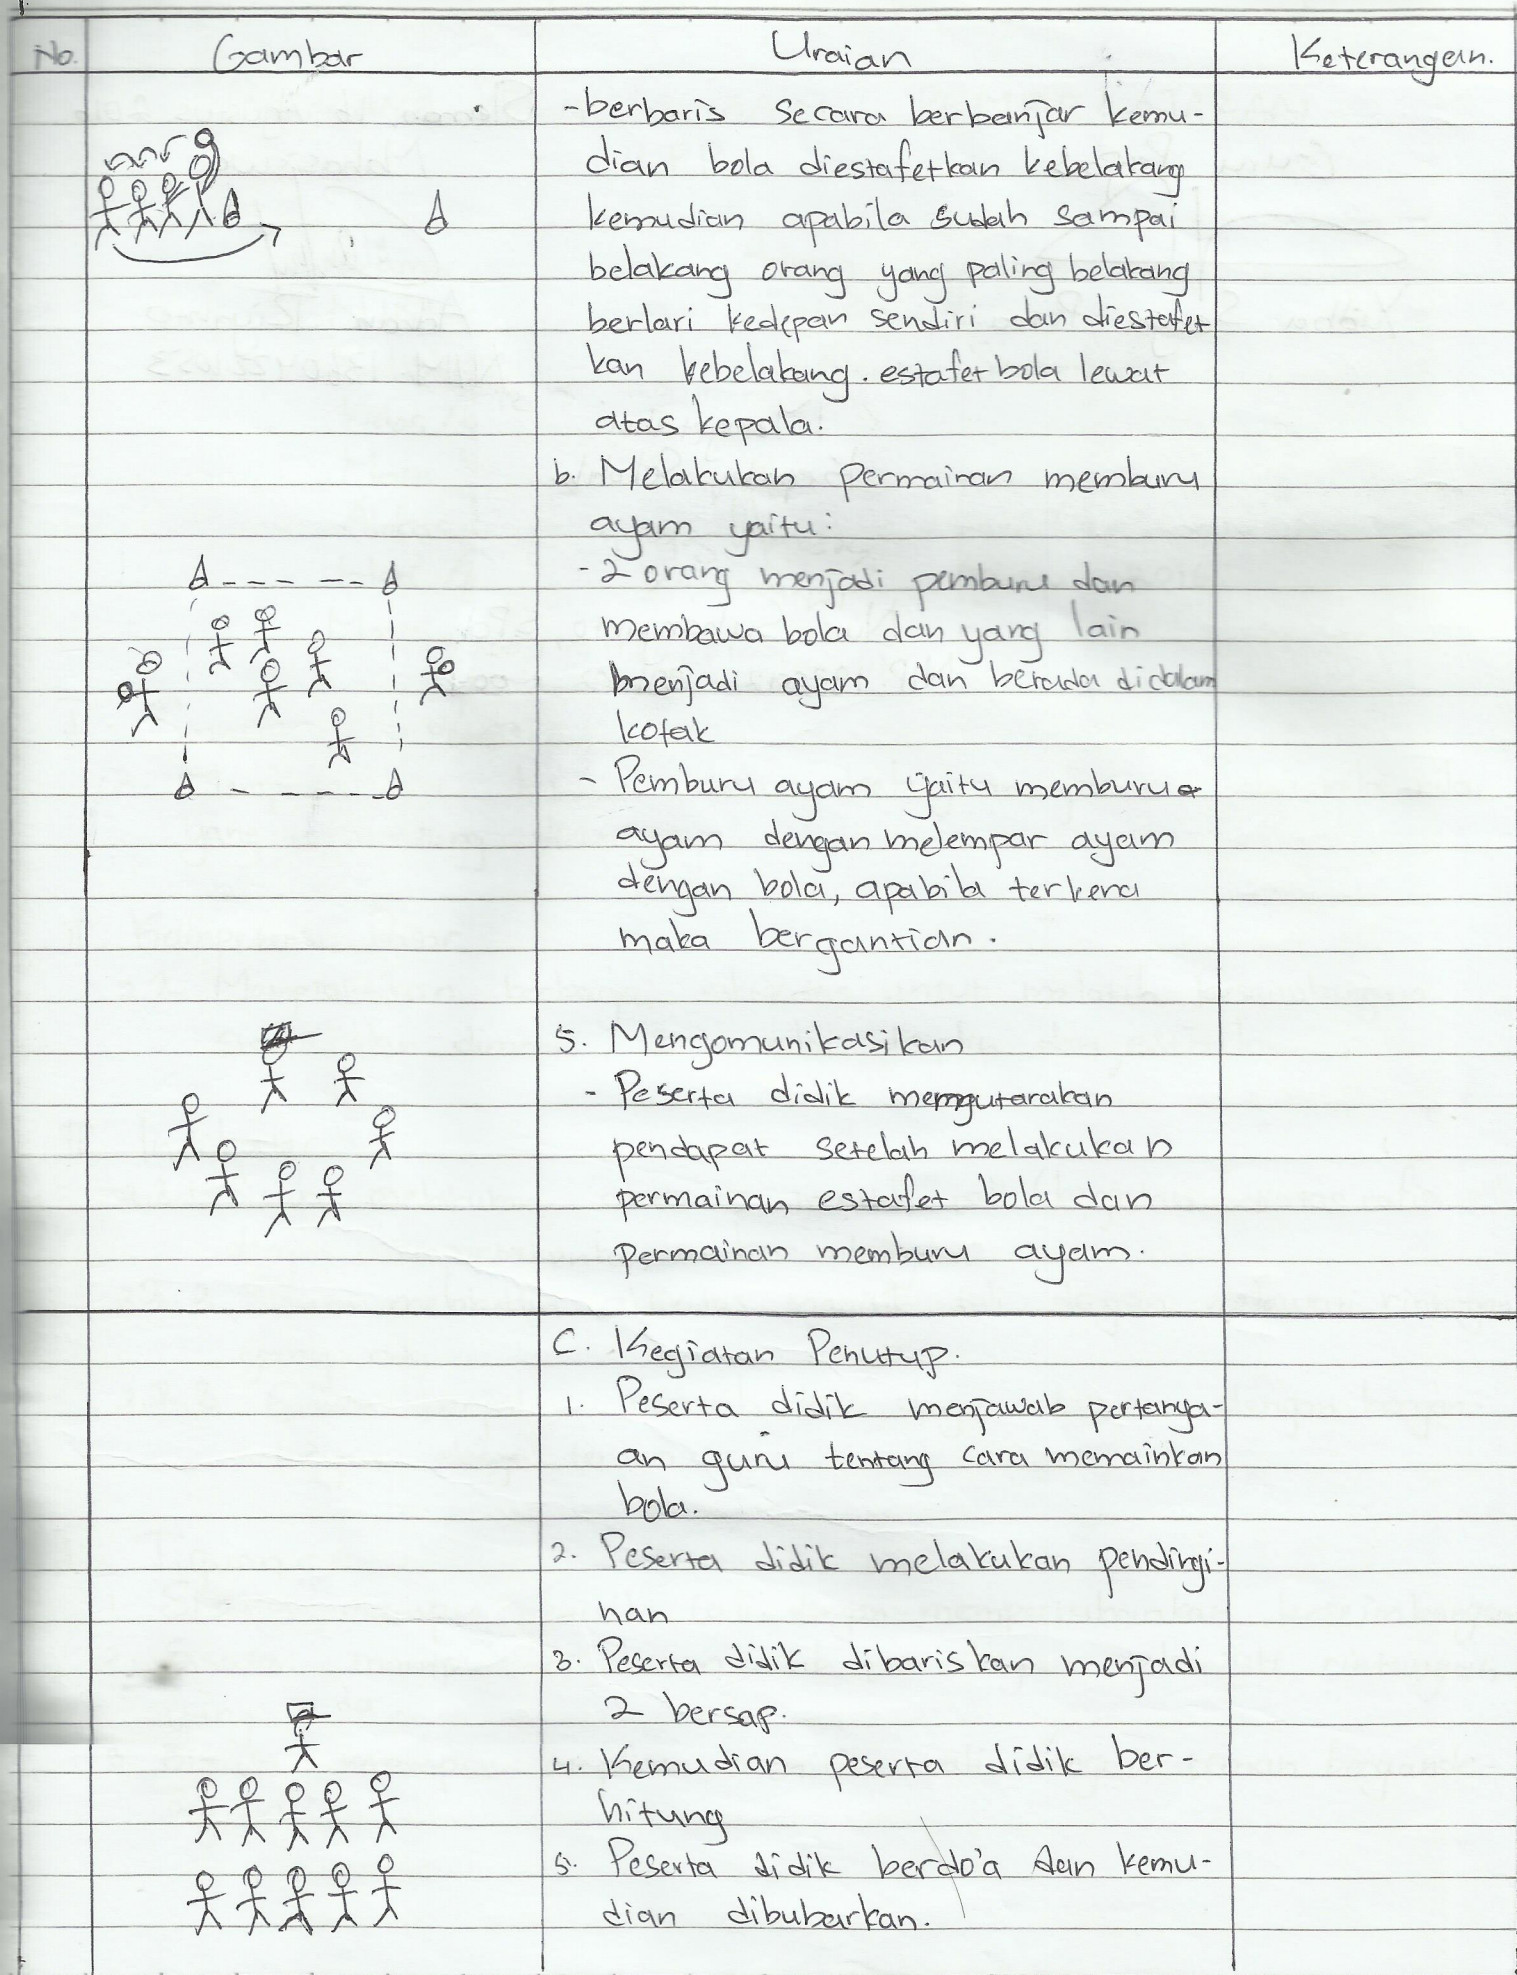 No. Gambar Uraian Keterangan.
- berbaris secara berbanjar kemu-
dian bola diestafetkan kebelakang
kemudian apabila sudah sampai
belakang orang yang paling belakang
berlari kedepan sendiri dan diestafet
kan kebelakang. estafet bola lewat
atas kepala.
b. Melakukan permainan memburu
ayam yaitu:
- 2 orang menjadi pemburu dan
membawa bola dan yang lain
menjadi ayam dan berada didalam
kotak
- Pemburu ayam yaitu memburu
ayam dengan melempar ayam
dengan bola, apabila terkena
maka bergantian.
5. Mengomunikasikan
- Peserta didik mengutarakan
pendapat setelah melakukan
permainan estafet bola dan
permainan memburu ayam.
C. Kegiatan Penutup.
1. Peserta didik menjawab pertanya-
an guru tentang cara memainkan
bola.
2. Peserta didik melakukan pendingi-
nan
3. Peserta didik dibariskan menjadi
2 bersap.
4. Kemudian peserta didik ber-
hitung
5. Peserta didik berdo'a dan kemu-
dian dibubarkan.